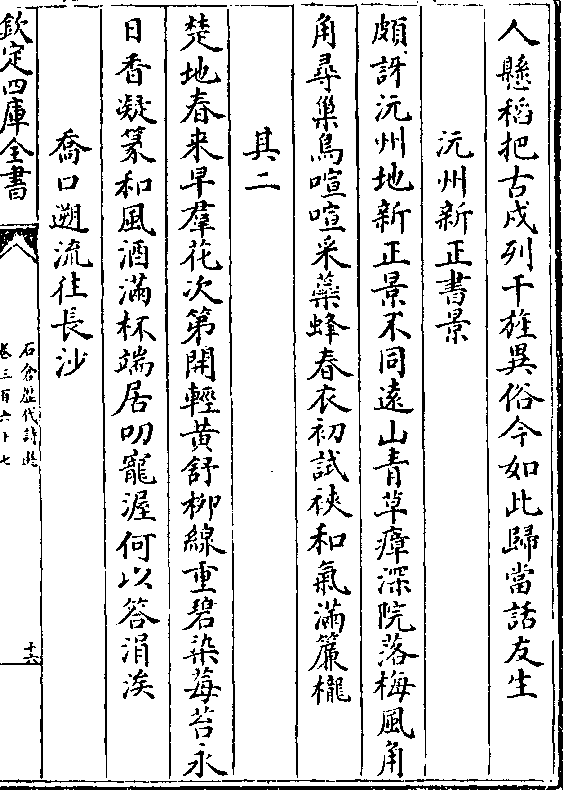 人懸稻把古戍列干旌異俗今如此歸當話友生
沅州新正書景
頗訝沅州地新正景不同遠山青草瘴深院落梅風角
角尋巢鳥喧喧采藥蜂春衣初試裌和氣滿簾櫳
其二
楚地春来早羣花次第開輕黄舒柳線重碧染莓苔永
日香凝篆和風酒滿杯端居叨寵渥何以答涓涘
喬口遡流往長沙
欽定四庫全書
石倉歴代詩選
卷三百六十七
十六